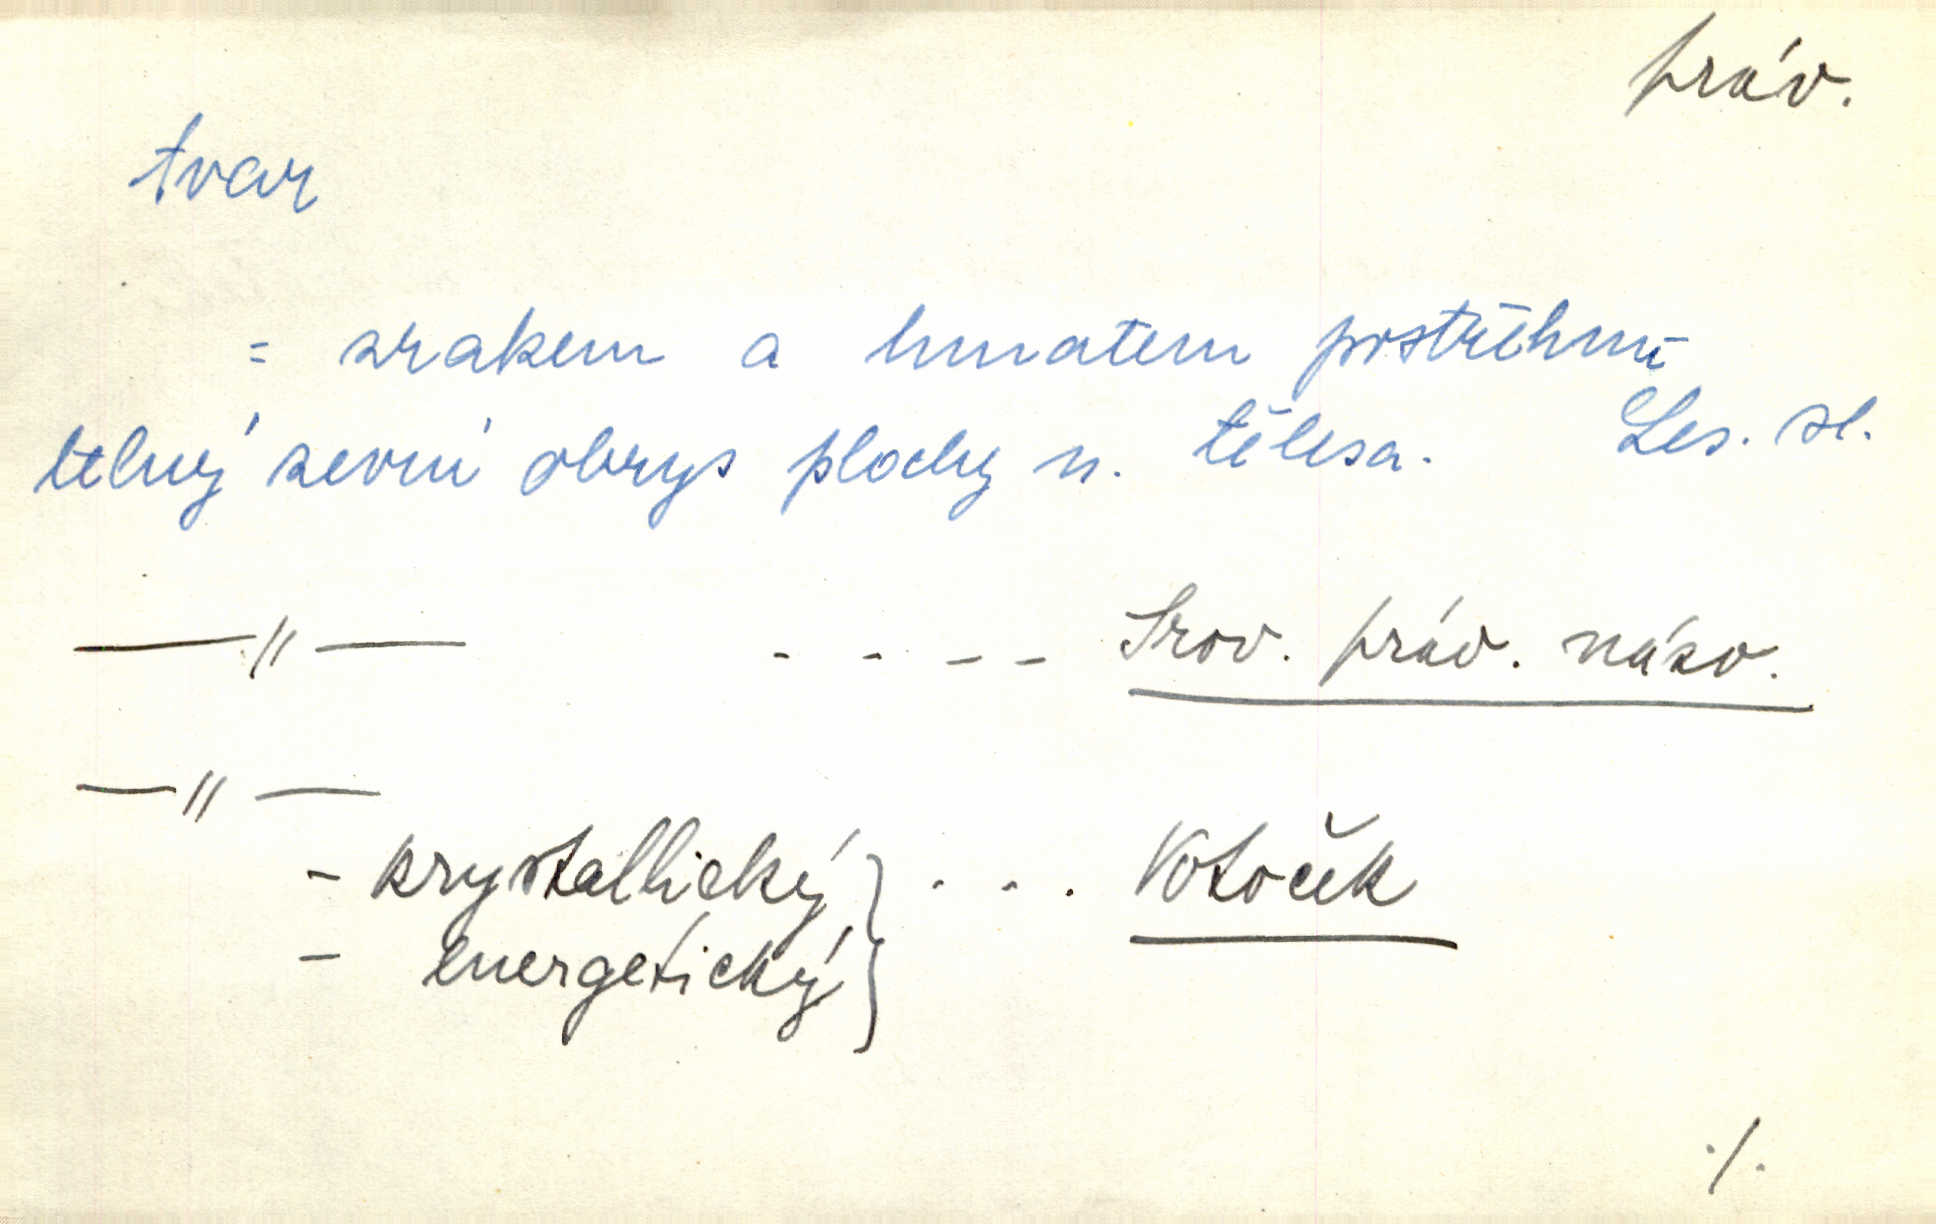 práv.
tvar
= zrakem a hmatem postřehnu
telný zevní obrys plochy n. tělesa. Les. sl.
—〃— - - - - Srov. práv. názv.
—〃—
- krystallický } . . . Votoček
- energetický
./.